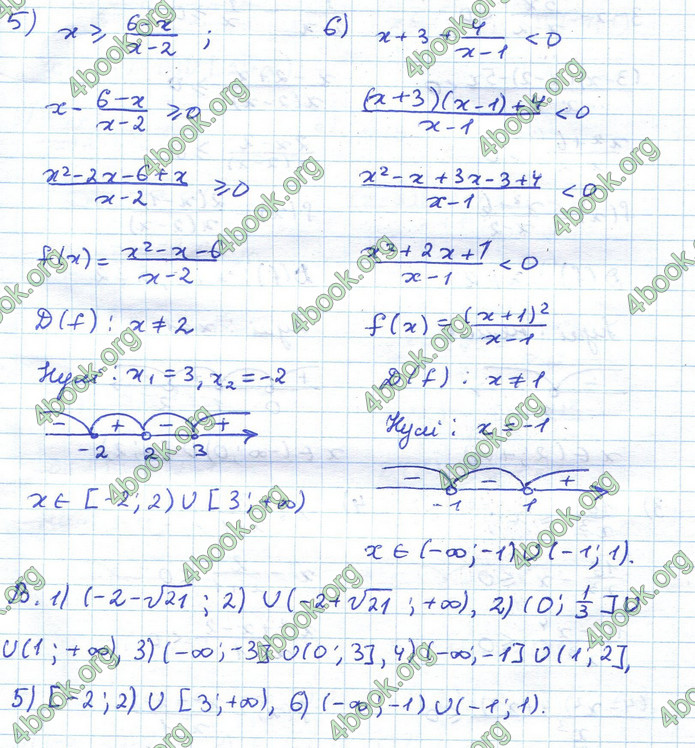 5) x ≥ (6-x)/(x-2) ;
x - (6-x)/(x-2) ≥ 0
(x²-2x-6+x)/(x-2) ≥ 0
f(x) = (x²-x-6)/(x-2)
D(f): x ≠ 2
Нулі: x₁ = 3, x₂ = -2
- + - +
-2 2 3
x ∈ [-2; 2) ∪ [3; +∞)
6) x + 3 + 4/(x-1) < 0
((x+3)(x-1)+4)/(x-1) < 0
(x²-x+3x-3+4)/(x-1) < 0
(x²+2x+1)/(x-1) < 0
f(x) = (x+1)²/(x-1)
D(f): x ≠ 1
Нулі: x = -1
- - +
-1 1
x ∈ (-∞; -1) ∪ (-1; 1).
В. 1) (-2-√21; 2) ∪ (-2+√21; +∞), 2) (0; 1/3] ∪
∪ (1; +∞), 3) (-∞; -3] ∪ (0; 3], 4) (-∞; -1] ∪ (1; 2],
5) [-2; 2) ∪ [3; +∞), 6) (-∞; -1) ∪ (-1; 1).
4book.org